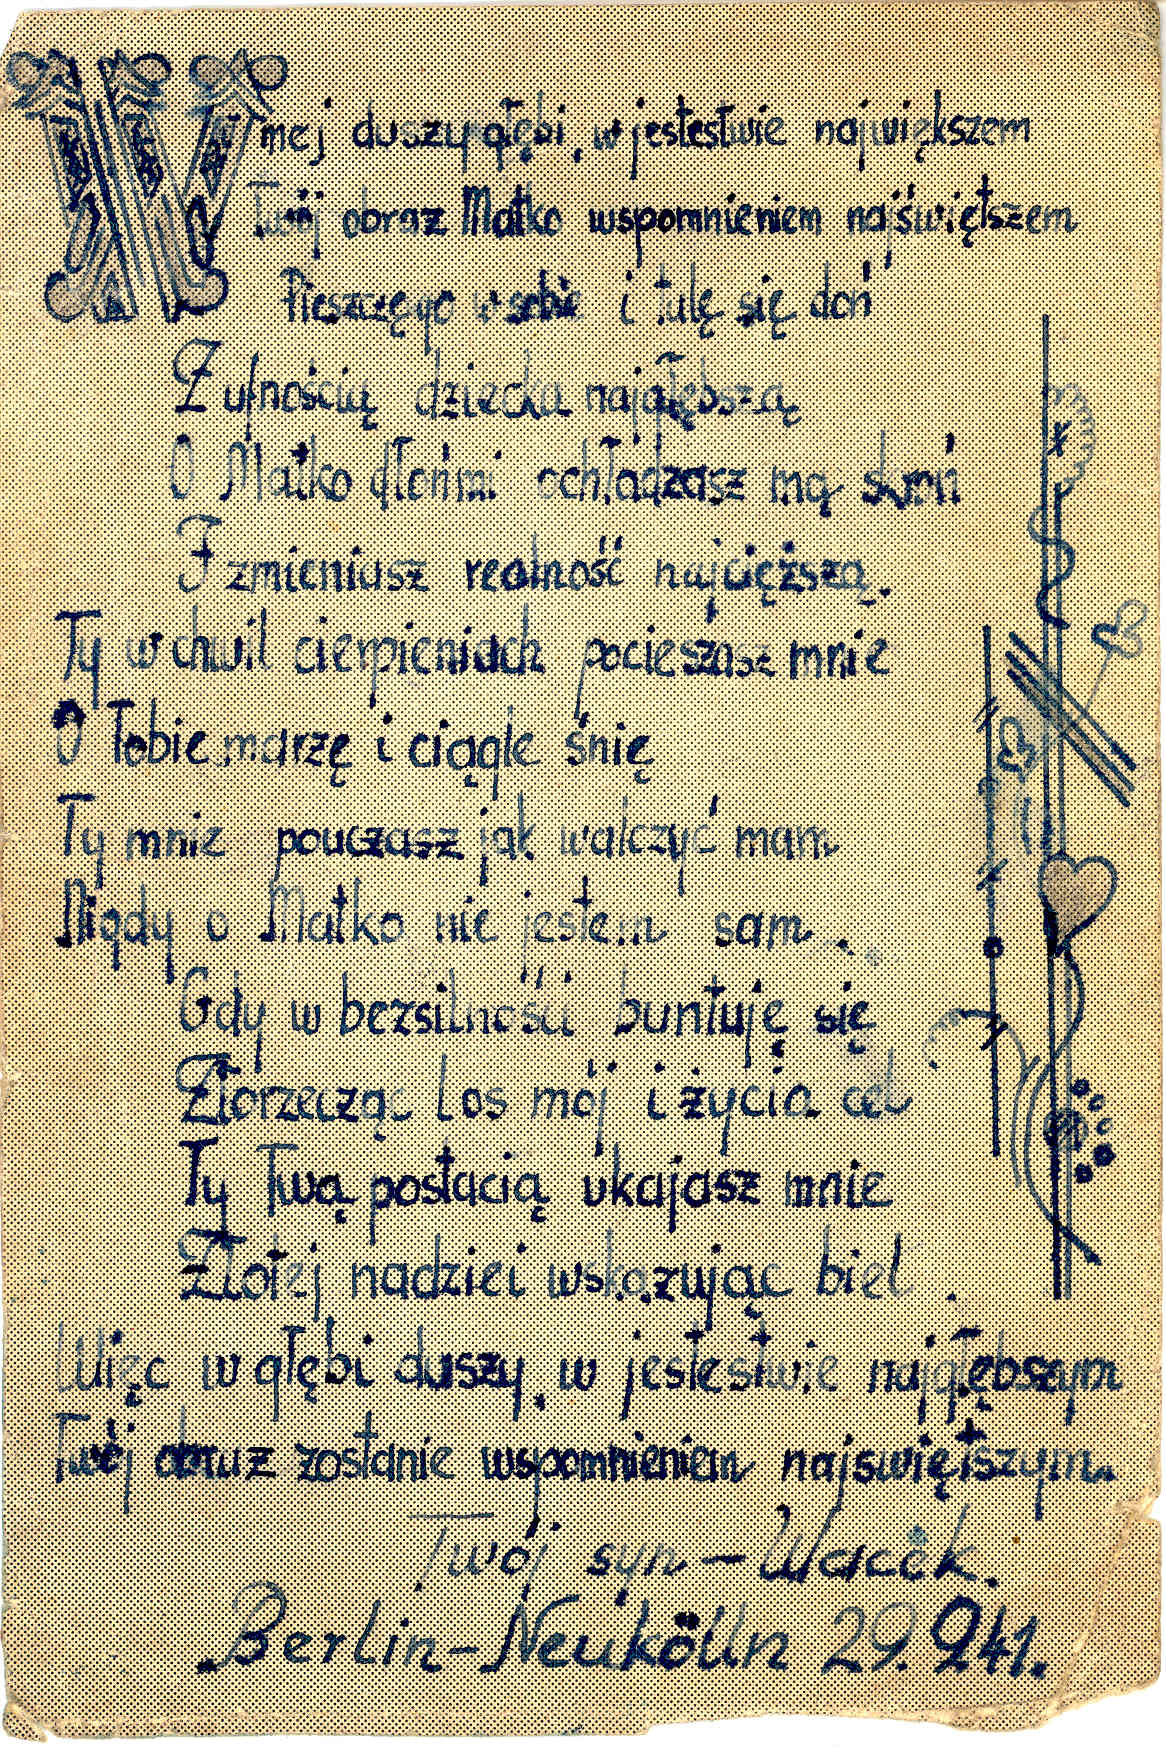 W mej duszy głębi, w jestestwie największem
Twój obraz Matko wspomnieniem najświętszem
Pieszczęgo w sobie i tulę się doń
Z ufnością dziecka najgłębszą
O Matko dłońmi ochładzasz mą skroń
I zmieniasz realność najcięższą.
Ty w chwil cierpieniach pocieszasz mnie
O Tobie marzę i ciągle śnię
Ty mnie pouczasz jak walczyć mam
Nigdy o Matko nie jestem sam.
Gdy w bezsilności buntuję się
Złorzecząc los mój i życia cel
Ty Twą postacią ukajasz mnie
Złotej nadziei wskazując biel.
Więc w głębi duszy, w jestestwie najgłębszym
Twój obraz zostanie wspomnieniem najswiętszym.
Twój syn – Wacek.
Berlin – Neukölln 29. 9 41.